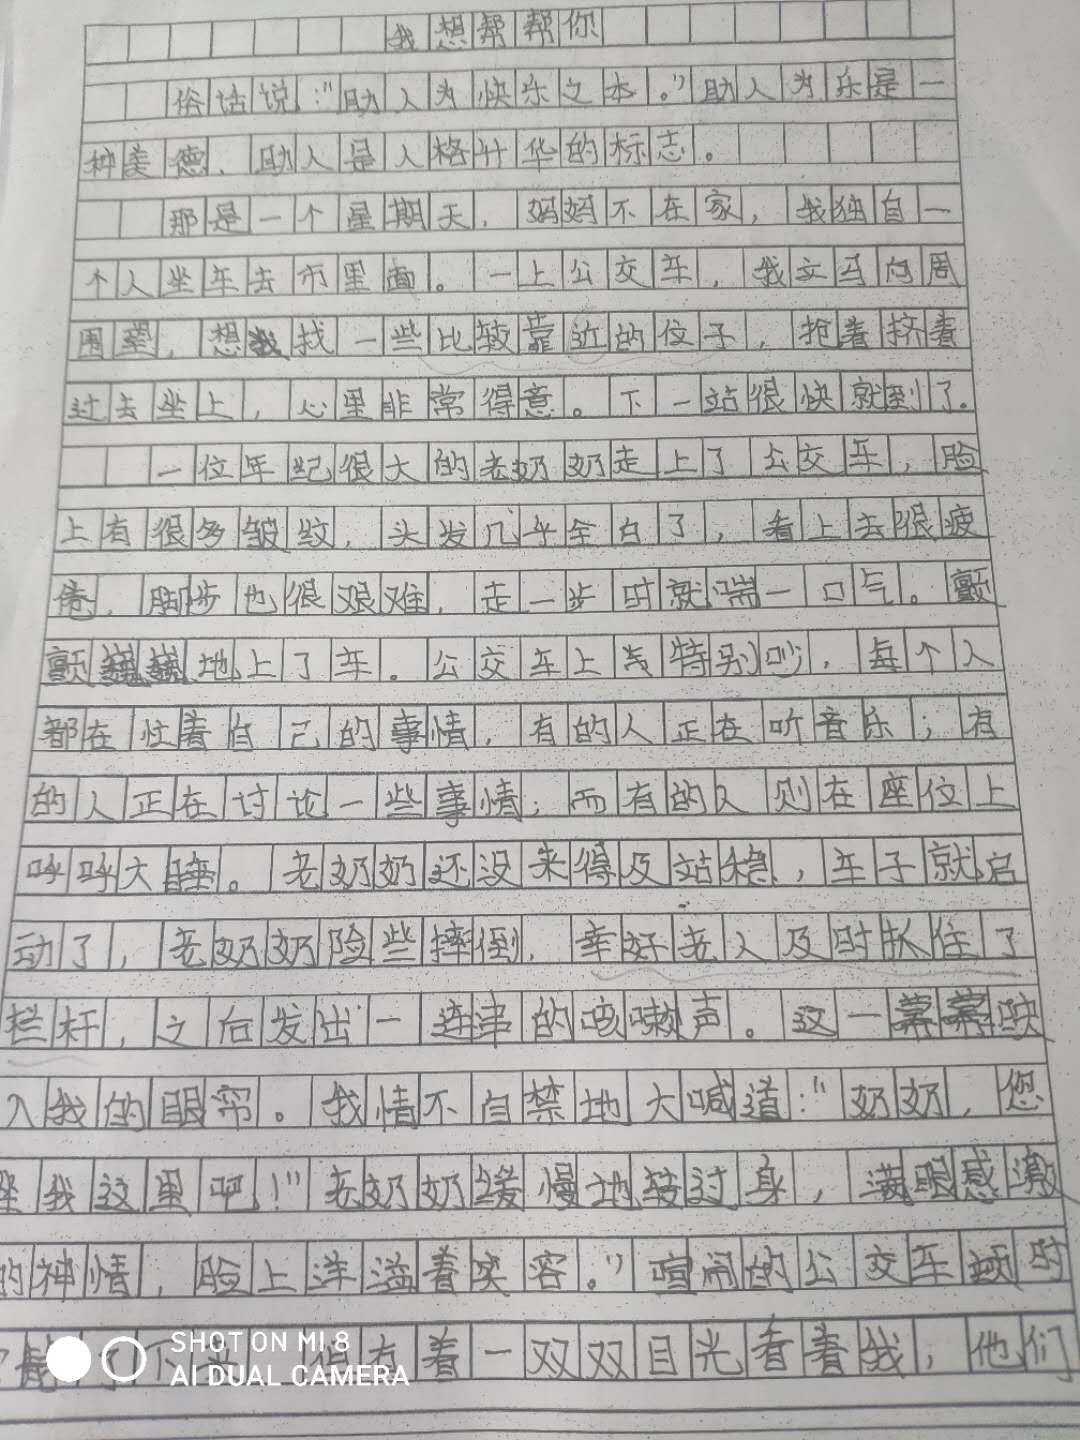 我想帮帮你
俗话说："助人为快乐之本。"助人为乐是一
种美德，助人是人格升华的标志。
那是一个星期天，妈妈不在家，我独自一
个人坐车去市里面。一上公交车，我立马向周
围望，想找一些比较靠近的位子，抢着挤着
过去坐上，心里非常得意。下一站很快就到了。
一位年纪很大的老奶奶走上了公交车，脸
上有很多皱纹，头发几乎全白了，看上去很疲
倦，脚步也很艰难，走一步时就喘一口气。颤
颤巍巍地上了车。公交车上特别吵，每个人
都在忙着自己的事情，有的人正在听音乐；有
的人正在讨论一些事情；而有的人则在座位上
呼呼大睡。老奶奶还没来得及站稳，车子就启
动了，老奶奶险些摔倒，幸好老人及时抓住了
拦杆，之后发出一连串的咳嗽声。这一幕幕映
入我的眼帘。我情不自禁地大喊道："奶奶，您
坐我这里吧！"老奶奶缓慢地转过身，满眼感激
的神情，脸上洋溢着笑容。"喧闹的公交车顿时
有着一双双目光看着我，他们
SHOT ON MI 8
AI DUAL CAMERA